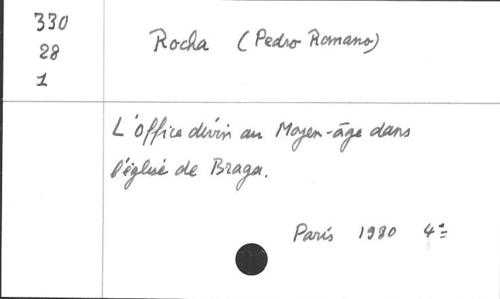 330
28
1
Rocha (Pedro Romano)
L'Office divin au Moyen-âge dans
l'église de Braga.
Paris 1980 4º